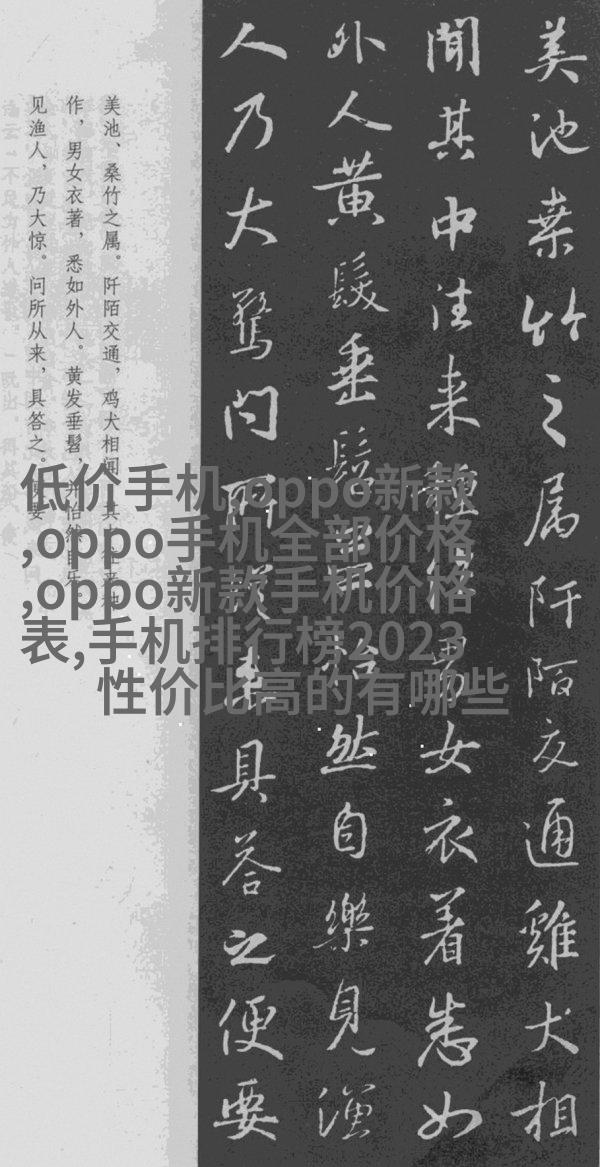 美池桒竹之属阡陌交通雞犬相
聞其中往来種作男女衣着悉如
外人黄髮垂髫並怡然自樂見漁
人乃大驚問所從来具答之便要
美池、桑竹之属。阡陌交通，鸡犬相闻。其中往来种
作，男女衣著，悉如外人。黄发垂髫，并怡然自乐。
见渔人，乃大惊。问所从来，具答之。便要
低价手机,oppo新款
,oppo手机全部价格
,oppo新款手机价格
表,手机排行榜2023
性价比高的有哪些